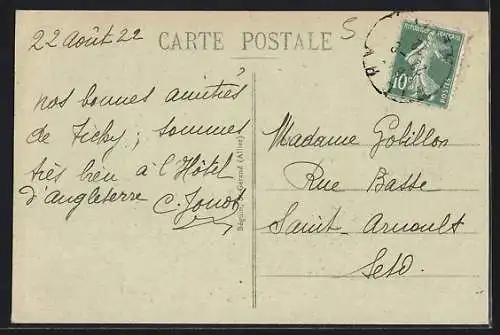 22 Août 22
CARTE POSTALE
5
RÉPUBLIQUE FRANÇAISE
10c
POSTES
nos bonnes amitiés
de Vichy; sommes
très bien à l'Hôtel
d'angleterre
Madame Gobillon
Rue Basse
Saint-Arnoult
Béguin, St-Gerand (Allier)